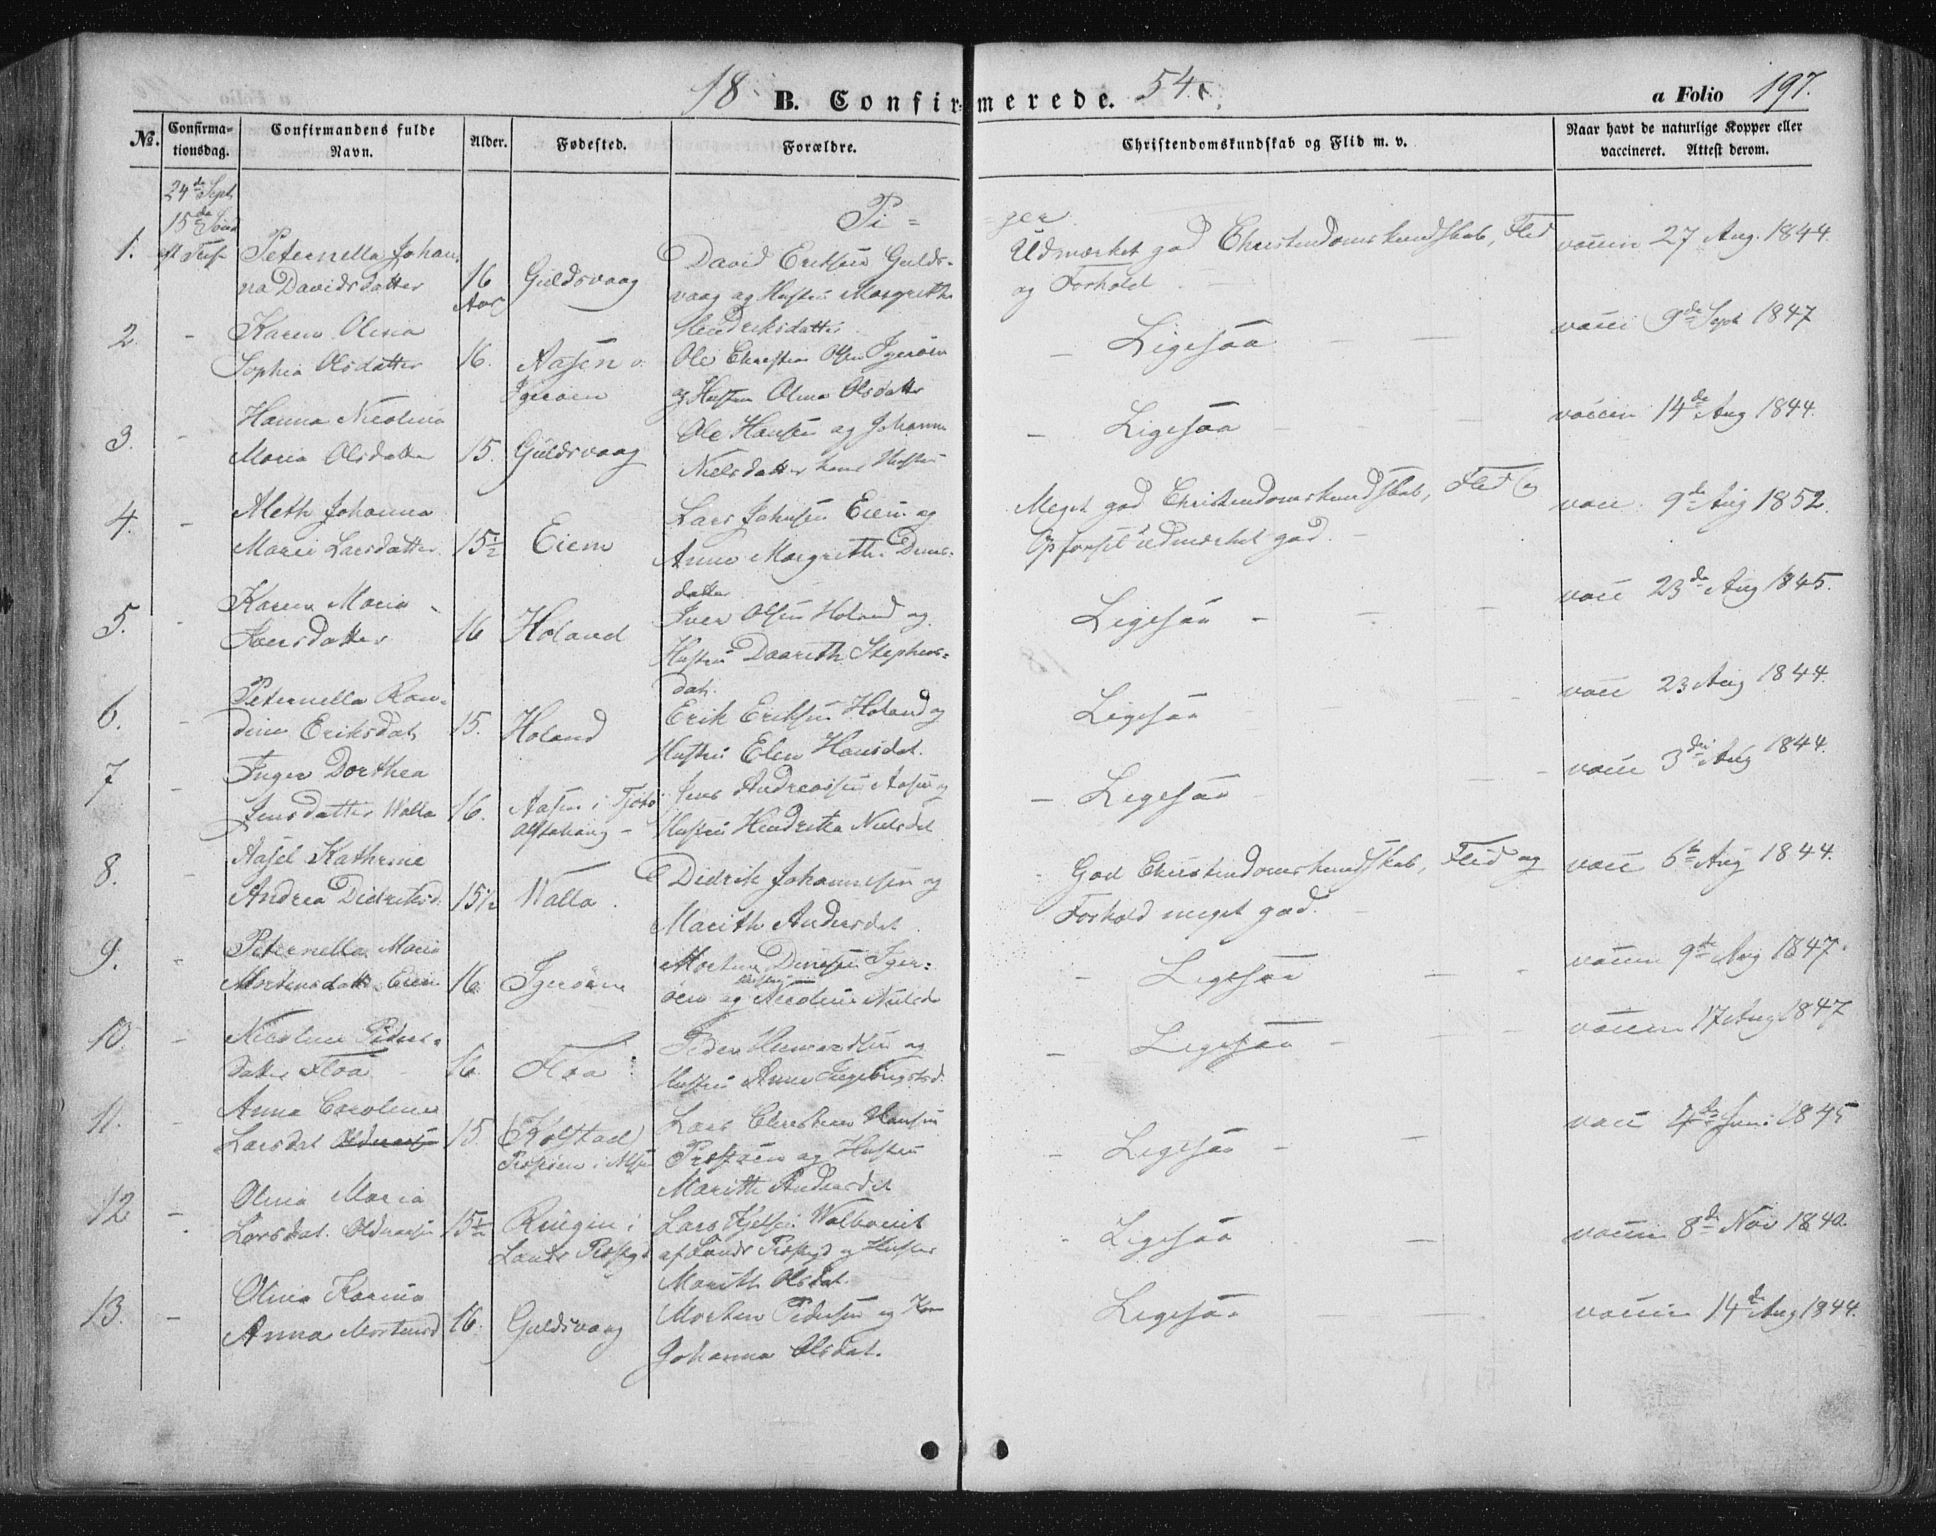 18 B. Confirmerede. 54. a Folio 197.
No. Confirmationsdag. Confirmandens fulde Navn. Alder. Fødested. Forældre. Christendomskundskab og Flid m. v. Naar havt de naturlige Kopper eller vaccineret. Attest derom.
24de Sept
15de Sønd Pi= =ger
1. Peternella Johan- David Eriksen Gulds- Udmærket god Christendomskundskab, Flid vaccin 27 Aug. 1844.
na Davidsdatter 16 Aar Guldsvaag vaag og Hustru Margrethe og Forhold
Hendriksdatter
2. - Karen Olina
Sophia Olsdatter 16. Aasen Igerøen Ole Christian Olsen Igerøen - Ligesaa - vacci 9de Sept 1847
og Hustru Olina Olsdatter
3. - Hanna Nicolina Ole Hansen og Johanna - Ligesaa - vaccin 14de Aug 1844.
Maria Olsdatter 15. Guldsvaag Nielsdatter hans Hustru
4. - Aleth Johanna Lars Johnsen Eiem og Meget god Christendomskundskab, Flid og vacc. 9de Aug 1852.
Marie Larsdatter 15½ Eiem Anne Margrethe Dins- Opførsel udmærket god.
datter
5. - Karen Maria Iver Olsen Holand og Ligesaa - vacc 23de Aug 1845.
Iversdatter 16 Holand Hustru Daareth Stephens=
dat.
6. - Peternella Ran- Erik Eriksen Holand og Ligesaa - vacc 23 Aug 1844.
dine Eriksdat. 15. Holand Hustru Elen Hansdat.
7 - Inger Dorthea Jens Andreassen Aasen og - Ligesaa - vacc 3die Aug 1844.
Jensdatter Walla 16. Aasen i Tjøtø Hustru Hendrikka Nielsdat
Alstahaug -
8. Aasel Kathrine Didrik Johannesen og God Christendomskundskab, Flid og vacc 6te Aug 1844.
Andrea Didriksd. 15½ Walla. Marith Andersdat. Forhold meget god.
9. - Peternella Maria Morten Dinesen Iger= - Ligesaa - vaccin 9de Aug 1847.
Mortensdatt. Eiem 16. Igerøen øen og Hustru Nicoline Nielsd
10. - Nicoline Peders- Peder og - Ligesaa - vaccin 17 Aug 1847
datter Floa 16. Floa Hustru Anne Ingebrigtsd.
11. - Anna Caroline Lars Christian Hansen - Ligesaa - vacc 4de Juni 1845
Larsdat. 15. (Kolstad) og Hustru
i Alsten Marith Andersdat
12 - Olina Maria Lars Ligesaa - vaccin 8de Nov 1840.
Larsdat. 15½ i og Hustru
Marith Olsdat.
13. - Olina Karina Morten Pedersen og Kone Ligesaa - vaccin 14de Aug 1844.
Anna Mortensd 16. Guldsvaag Johanna Olsdat.